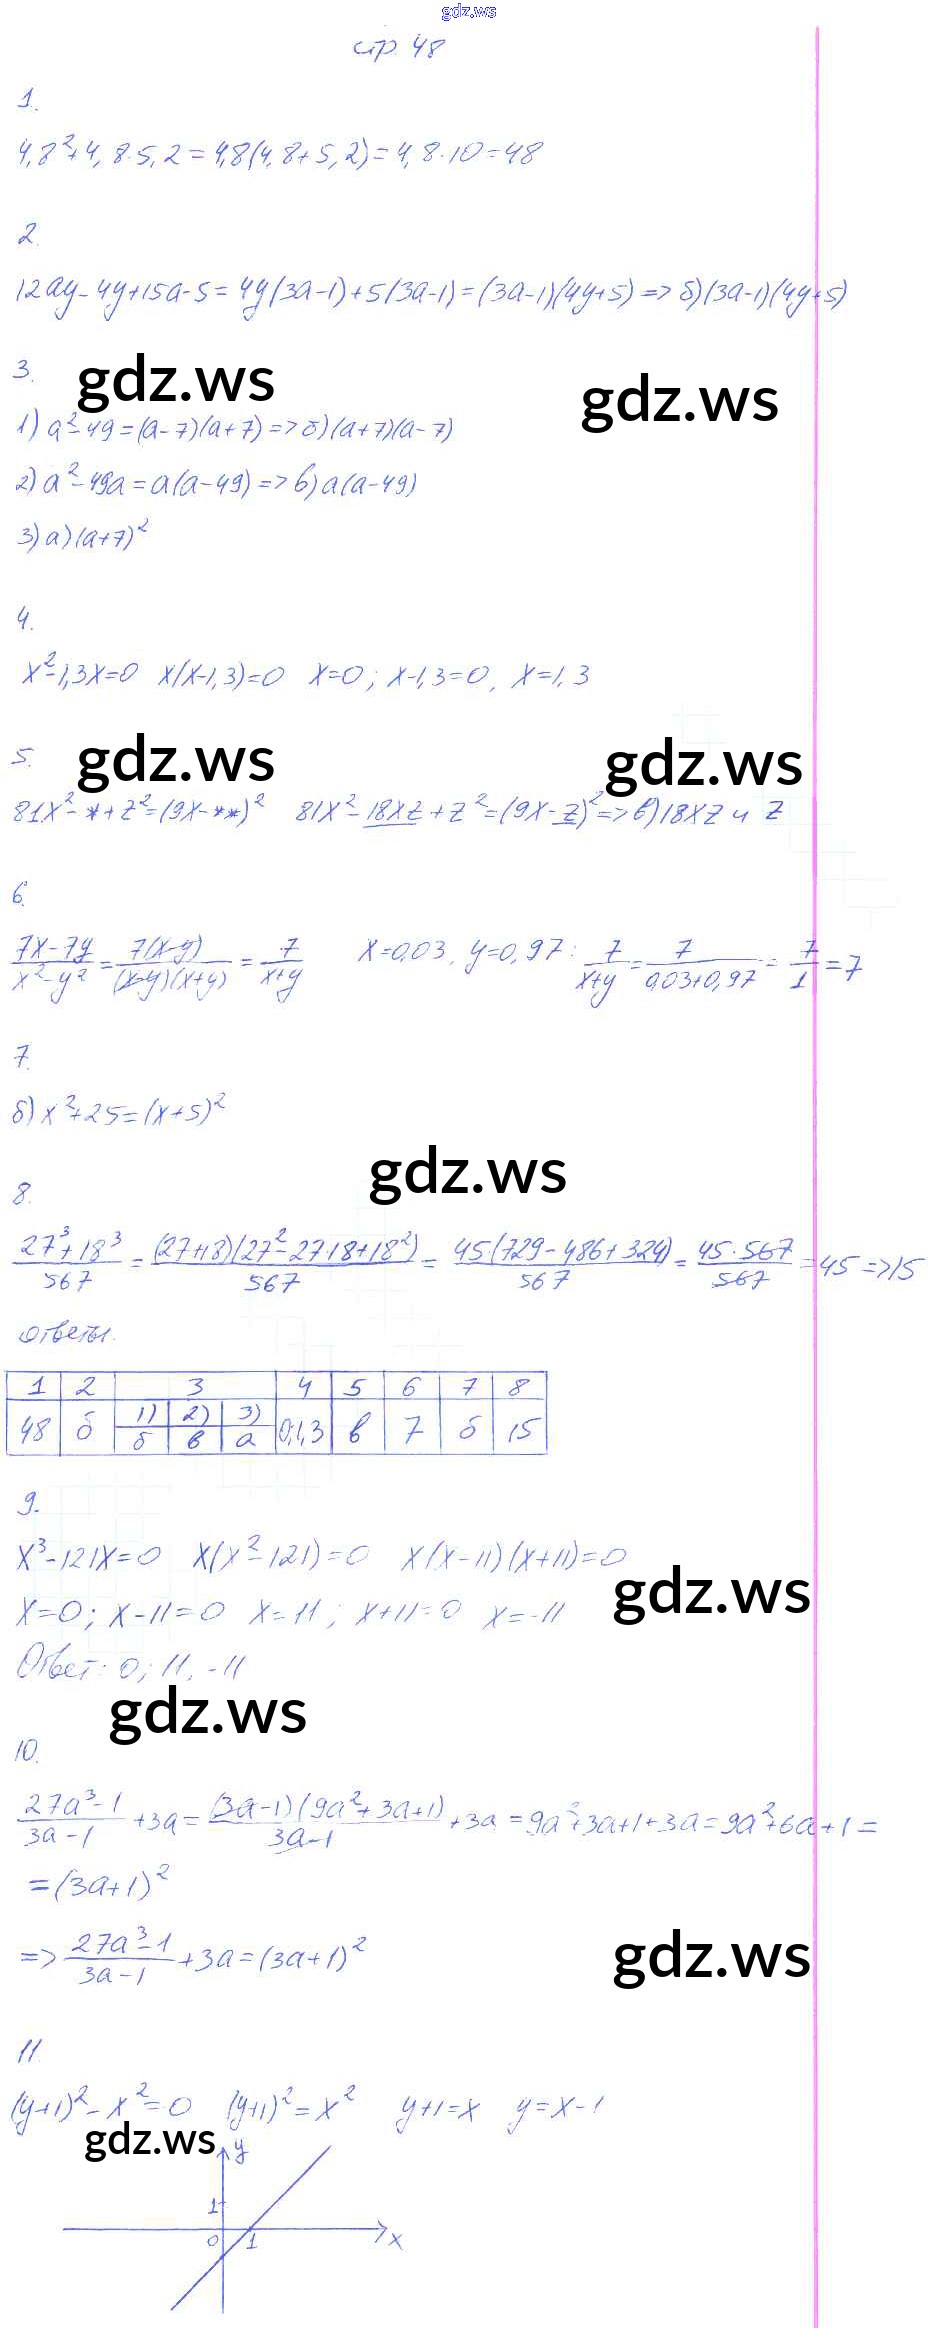 gdz.ws
стр. 48
1.
4,8²+4,8·5,2=4,8(4,8+5,2)=4,8·10=48
2.
12ay-4y+15a-5=4y(3a-1)+5(3a-1)=(3a-1)(4y+5)=>б)(3a-1)(4y+5)
3.
gdz.ws
gdz.ws
1) a²-49=(a-7)(a+7)=>б)(a+7)(a-7)
2) a²-49a=a(a-49)=>в)a(a-49)
3) а)(a+7)²
4.
x²-1,3x=0 x(x-1,3)=0 x=0; x-1,3=0, x=1,3
5.
gdz.ws
gdz.ws
81x²-*+z²=(9x-**)² 81x²-18xz+z²=(9x-z)²=>в)18xz и z
6.
7x-7y/x²-y²=7(x-y)/(x-y)(x+y)=7/x+y x=0,03, y=0,97: 7/x+y=7/0,03+0,97=7/1=7
7.
б) x²+25=(x+5)²
gdz.ws
8.
27³+18³/567=(27+18)(27²-27·18+18²)/567=45(729-486+324)/567=45·567/567=45=>15
ответы.
1 2 3 4 5 6 7 8
48 б 1) 2) 3) 0;1,3 в 7 б 15
б в а
9.
x³-121x=0 x(x²-121)=0 x(x-11)(x+11)=0
gdz.ws
x=0; x-11=0 x=11; x+11=0 x=-11
Ответ: 0; 11, -11
gdz.ws
10.
27a³-1/3a-1+3a=(3a-1)(9a²+3a+1)/3a-1+3a=9a²+3a+1+3a=9a²+6a+1=
=(3a+1)²
=> 27a³-1/3a-1+3a=(3a+1)²
gdz.ws
11.
(y+1)²-x²=0 (y+1)²=x² y+1=x y=x-1
gdz.ws
y
1
0 1 x